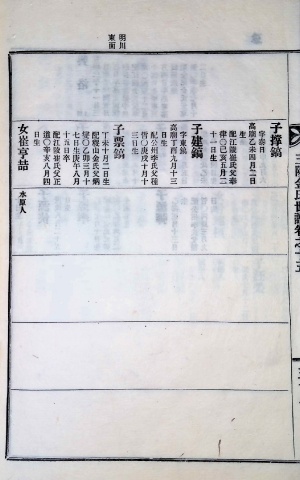 明川
東面
子擇鎬
字春日
高廟乙未四月二日
生
配江陵崔氏父奉
律○己亥五月二
十一日生
子建鎬
字東鎬
高廟丁酉九月十三
日生
配公州李氏父種
哲○庚戌十月十
三日生
子票鎬
丁未十月二日生
配稷山金氏父炳
燮○乙卯三月十
七日生庚午八月
十五日卒
配江陵崔氏父正
道○辛亥八月四
日生
女崔亨喆
水原人
金氏世譜卷之十五